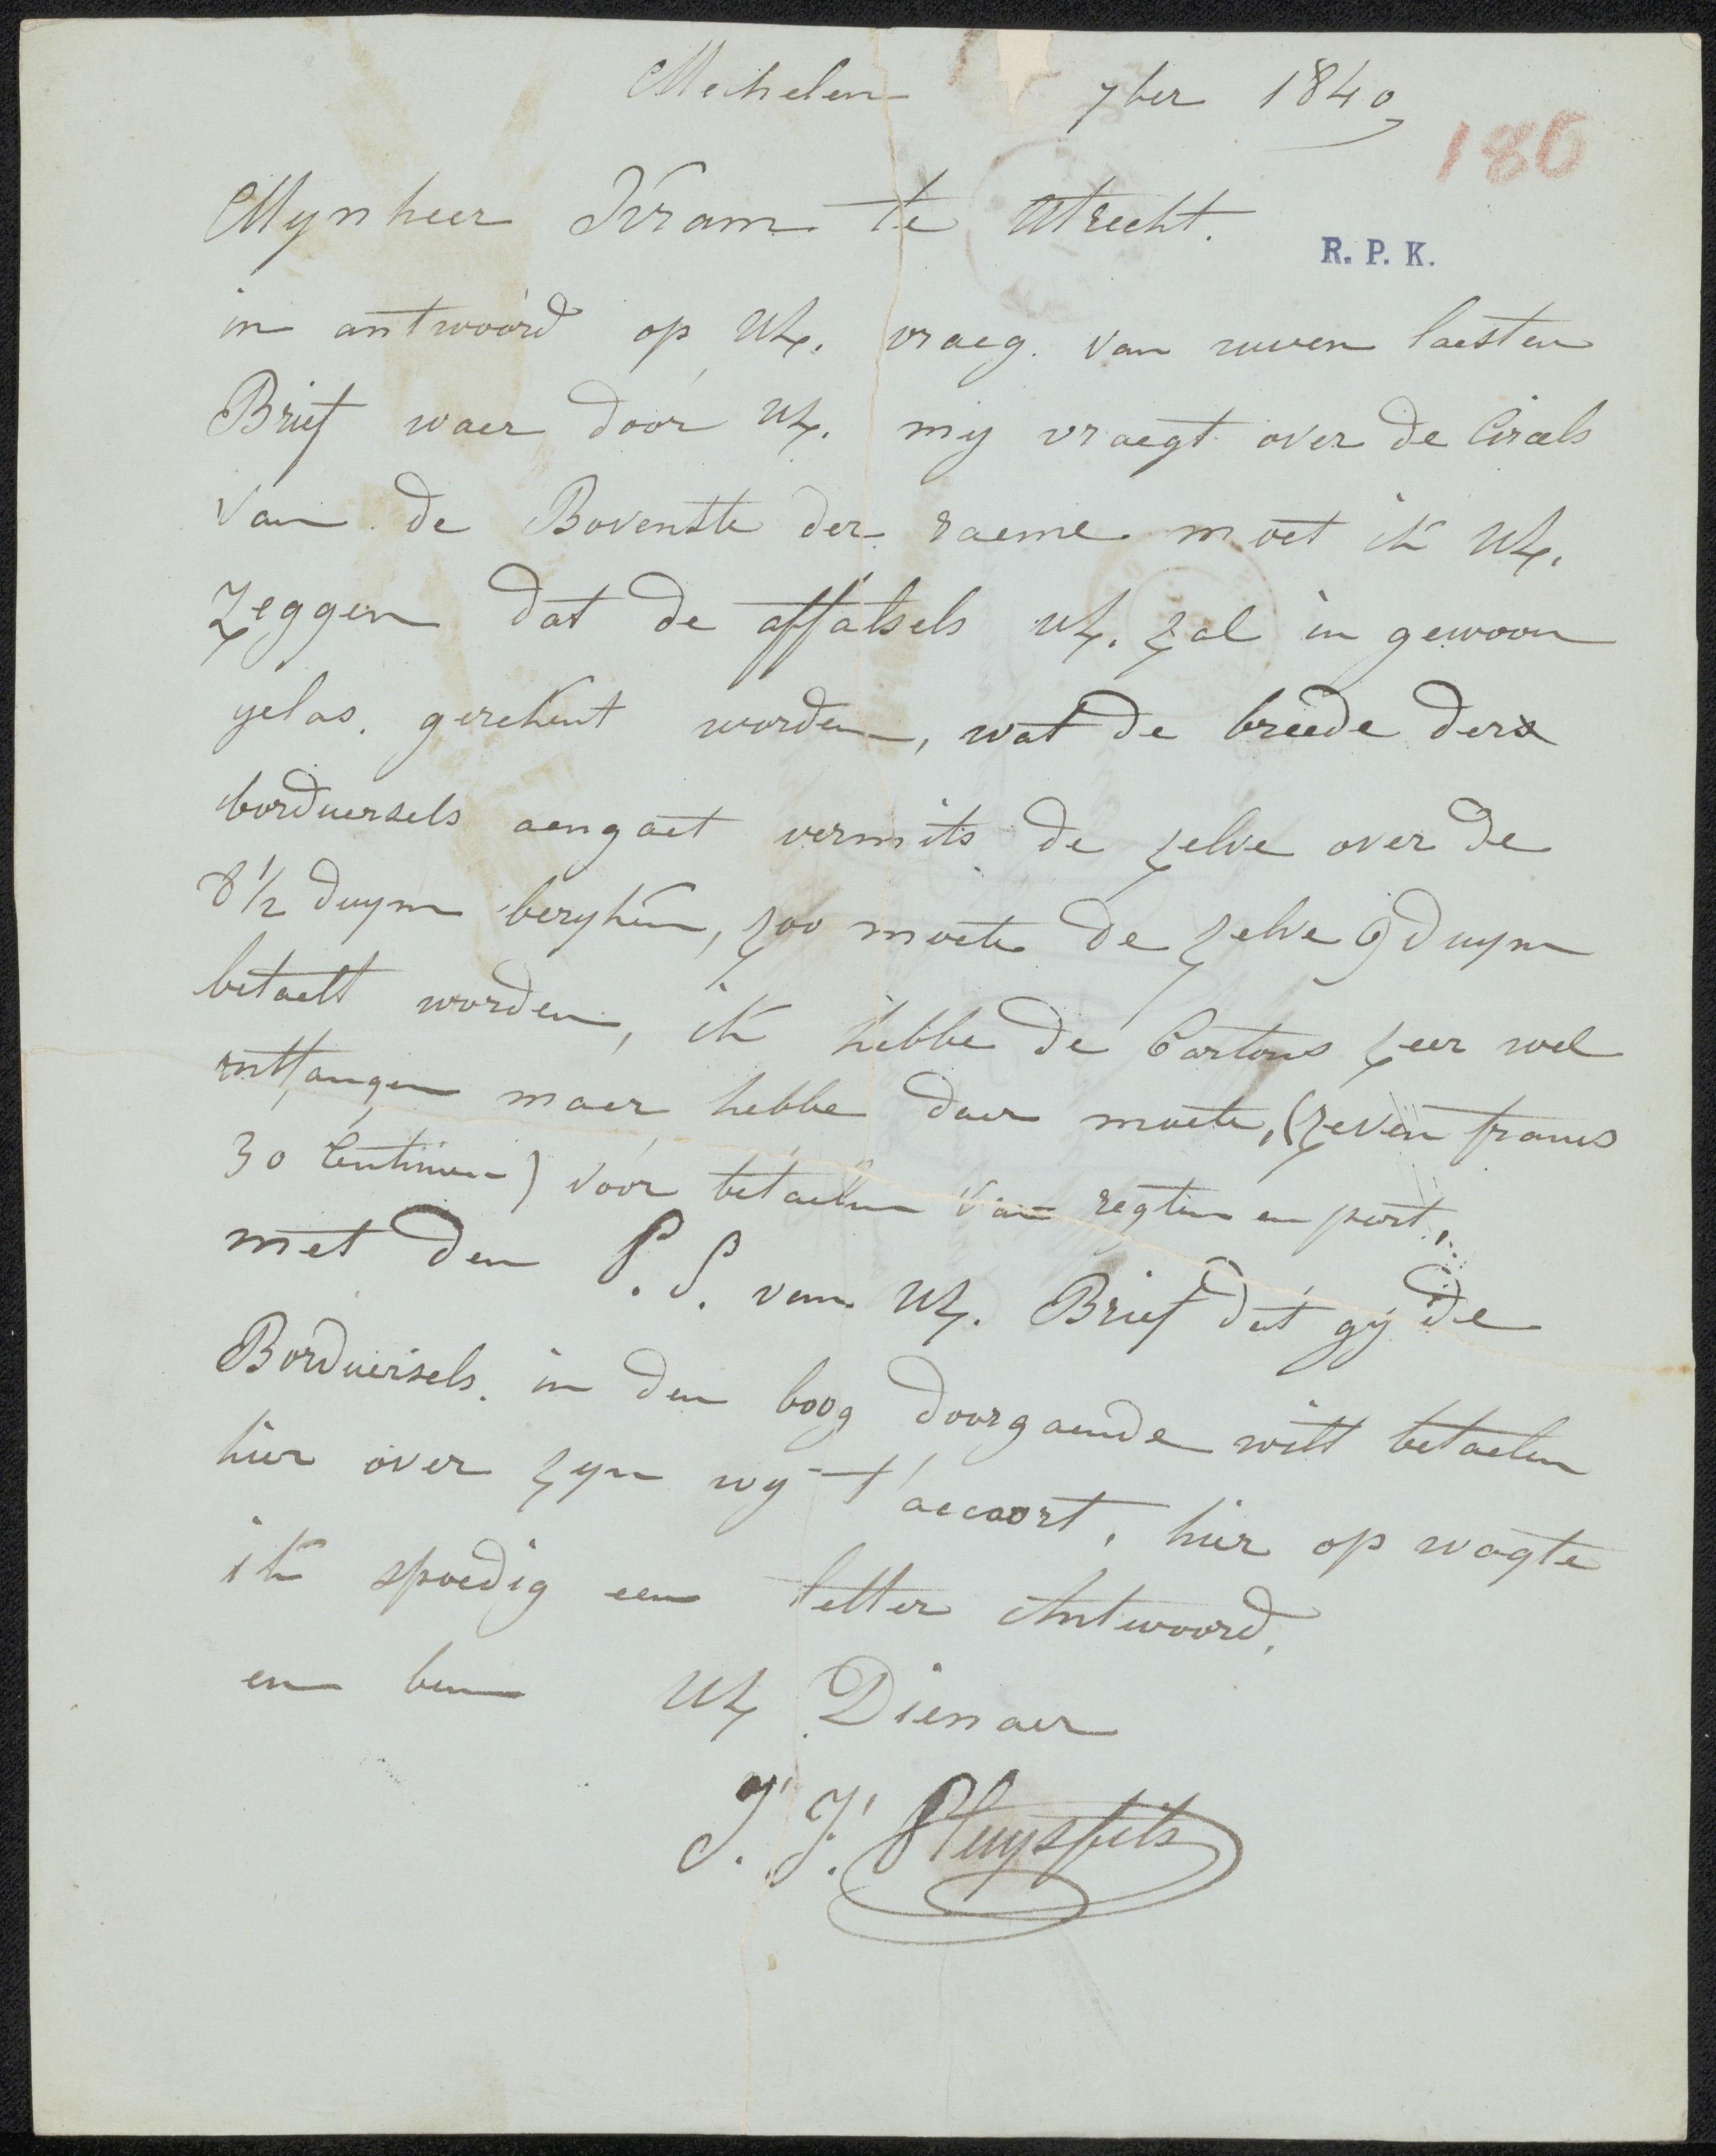 Mechelen 7ber 1840
186
Mynheer Kram te Utrecht.
R. P. K.
in antwoord op UE. vraeg. van uwen laesten
Brief waer door UE. my vraegt over de Cirals
van de Bovenste der raeme moet ik UE.
Zeggen dat de affalsels UE. zal in gewoon
gelas. gerekent worden, wat de breede der
borduersels aengaet vermits de zelve over de
8 1/2 duym beryken, zoo moete de zelve 9 duym
betaelt worden, ik hebbe de Cartons zeer wel
ontfangen maer hebbe daer moete, (zeven francs
30 Centimen) voor betaelen van regten en port,
met den P. S. van UE. Brief dat gy de
Borduersels. in den boog doorgaende wilt betaelen
hier over zyn wy t'accoort, hier op wagte
ik spoedig een letter Antwoord,
en ben UE Dienaer
J. F. Pluys fils